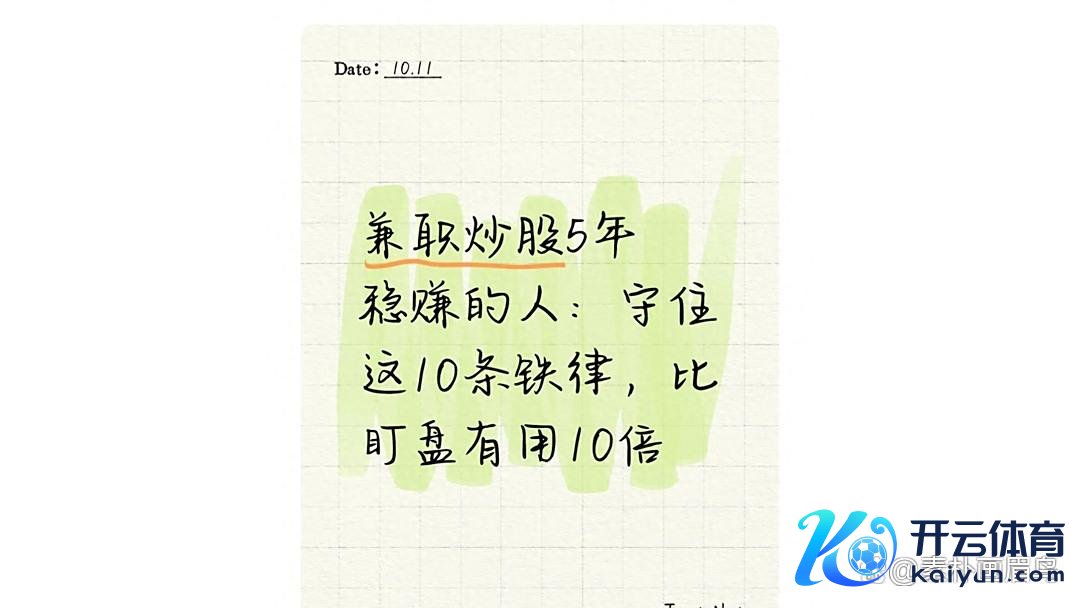 Date: 10.11
兼职炒股5年
稳赚的人：守住
这10条铁律，比
盯盘有用10倍
开云体育
Kaiyun.com